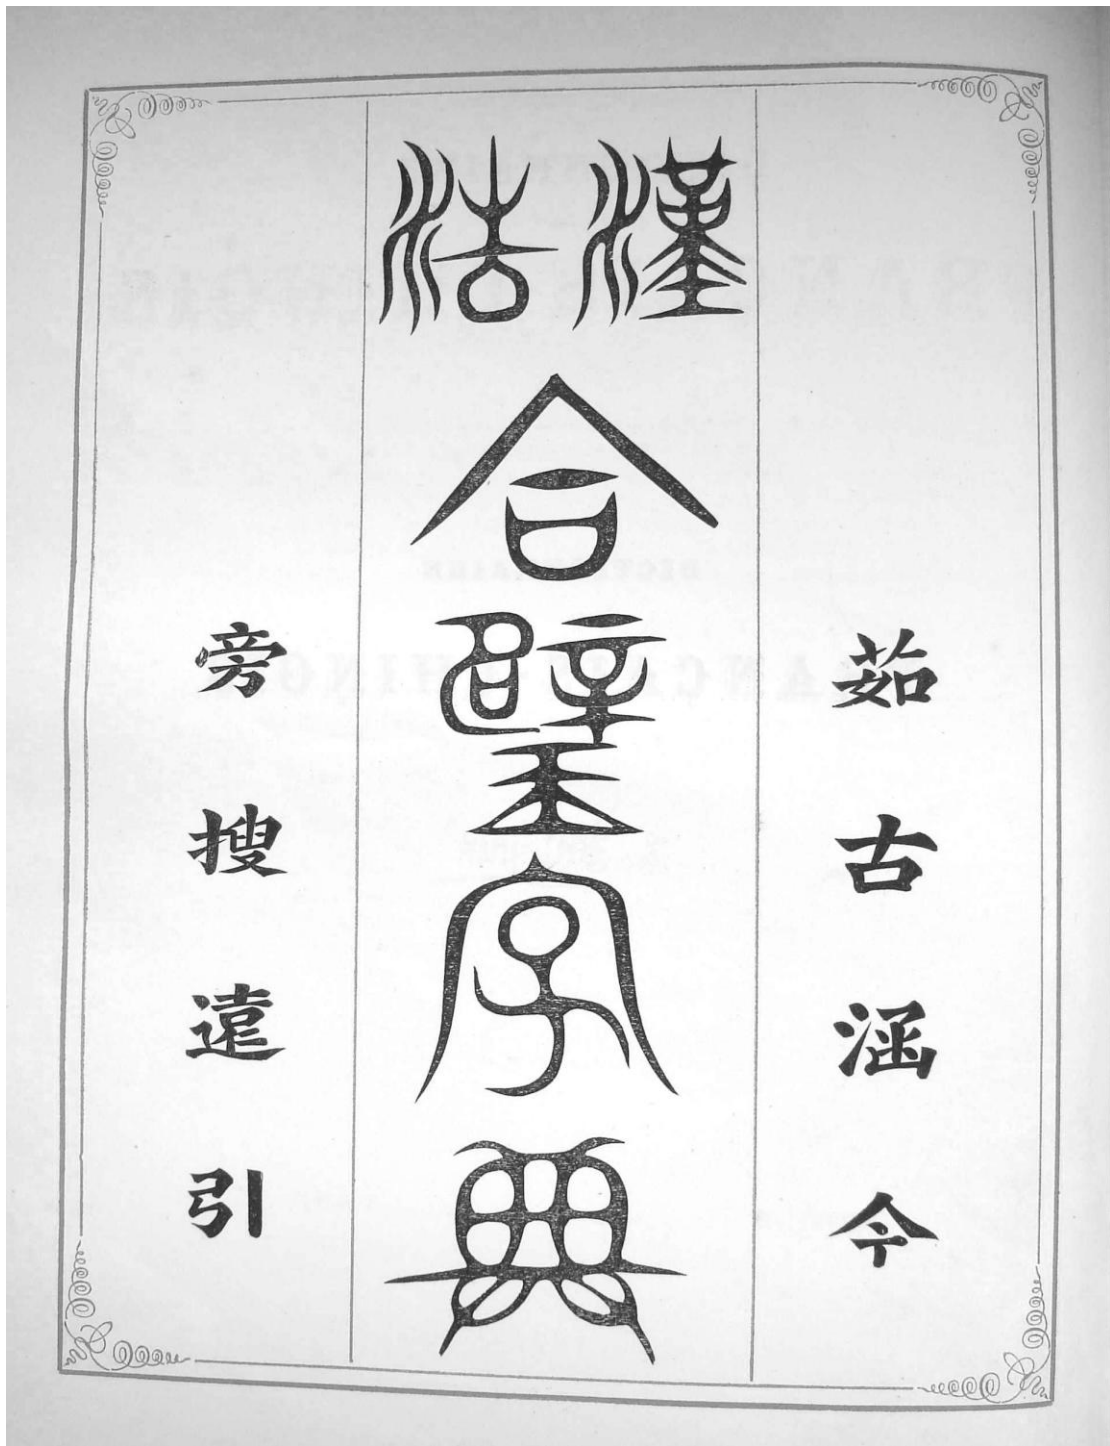 茹古涵今
漢法合璧字典
旁搜遠引